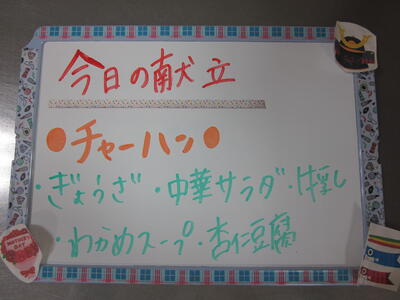 今日の献立
●チャーハン●
・ぎょうざ・中華サラダ・牛乳
・わかめスープ・杏仁豆腐